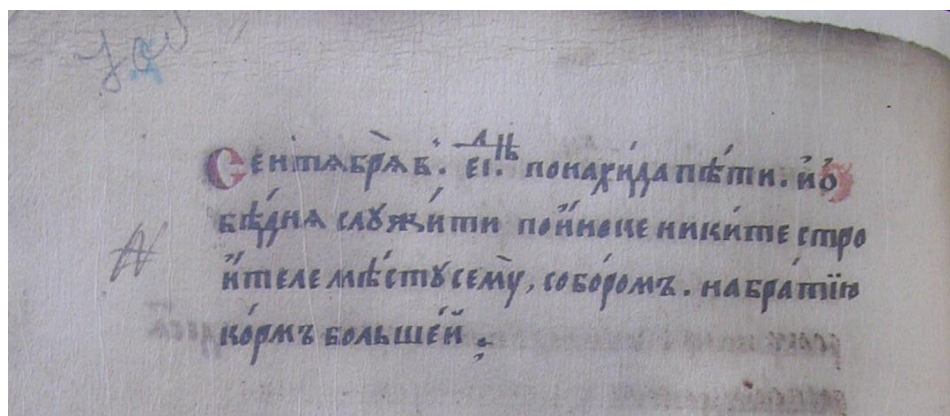 Сентѧбрѧ в҃. е҃і. д҃нь понахи́да пѣ́ти. и҆ ѻ҆
бѣ́днѧ служи́ти по и҆́ноке ники́те стро
и҆́теле мѣ́сту сему̀, собо́ромъ. на бра́тїю
ко́рмъ большє́й